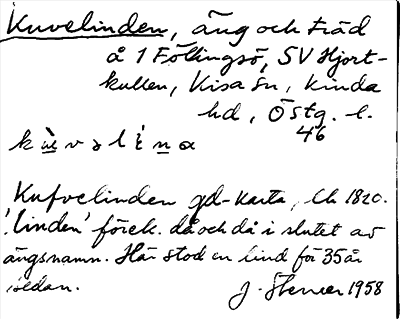 Kuvelinden, äng och träd
å 1 Föllingsö, SV Hjort-
kullen, Kisa sn, Kinda
hd, Östg. l.
46
Kufvelinden gd-karta, Lh 1820.
'linden' förek. då och då i slutet av
ängsnamn. Här stod en lind för 35 år
sedan. J. Stener 1958